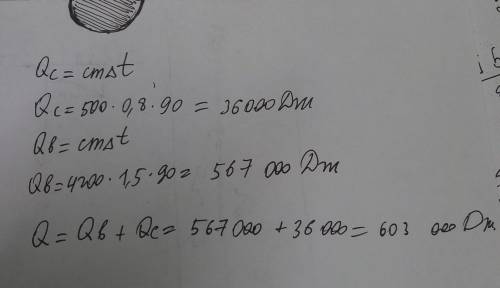 Qc = cm∆t
Qc = 500 · 0,8 · 90 = 36000 Dm
Qb = cm∆t
Qb = 4200 · 1,5 · 90 = 567 000 Dm
Q = Qb + Qc = 567 000 + 36 000 = 603 000 Dm